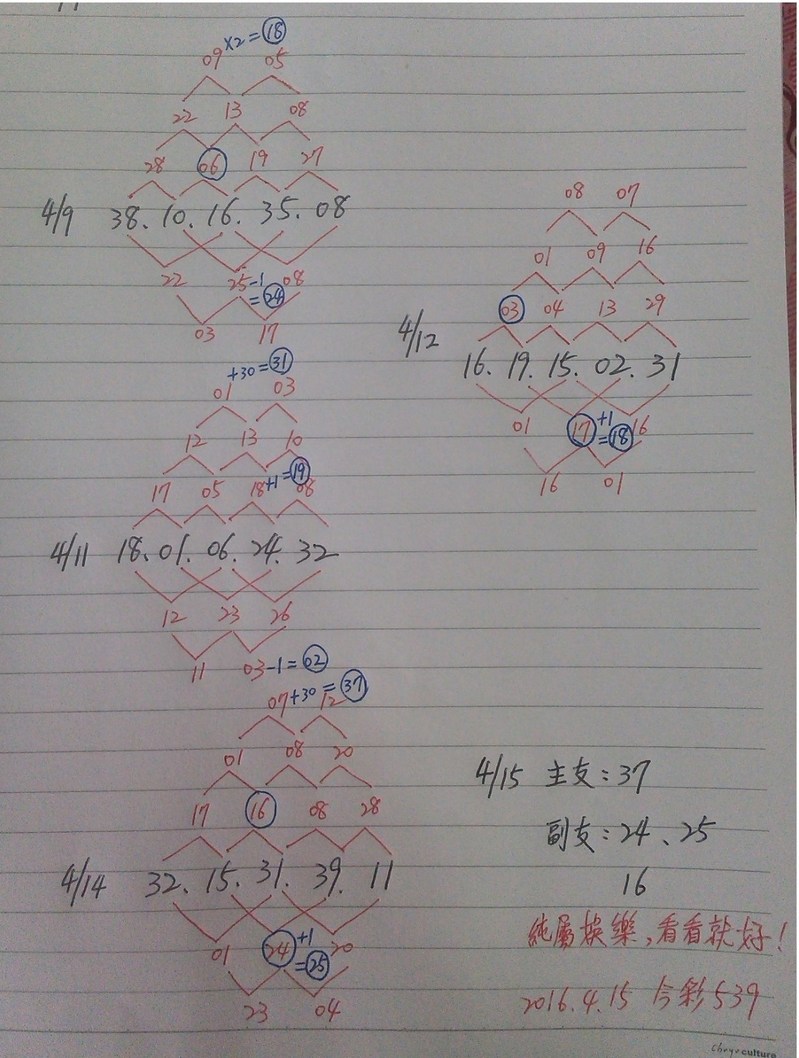 ×2=18
09 05
22 13 08
28 06 19 27
4/9 38. 10. 16. 35. 08
22 25-1 08
=24
03 17
+30=31
01 03
12 13 10
17 05 18+1=19 08
4/11 18. 01. 06. 24. 32
12 23 26
11 03-1=02
07+30=37
12
01 08 20
17 16 08 28
4/14 32. 15. 31. 39. 11
01 24+1 20
=25
23 04
08 07
01 09 16
03 04 13 29
4/12 16. 19. 15. 02. 31
01 17+1 16
=18
16 01
4/15 主支:37
副支:24、25
16
純屬娛樂,看看就好!
2016.4.15 今彩539
culture